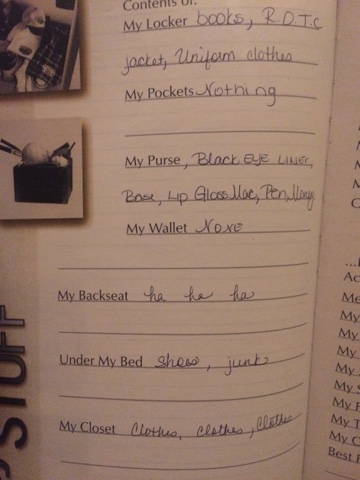 Contents of:
My Locker books, R.O.T.C
jacket, Uniform clothes
My Pockets Nothing
My Purse, Black EYE LINER,
Base, Lip Gloss Mac, Pen, Money
My Wallet NONE
My Backseat ha ha ha
Under My Bed shoes, junk
My Closet Clothes, clothes, Clothes
STUFF
...
Ac
Me
My
My
My
My
My
My F
My T
My C
Best F